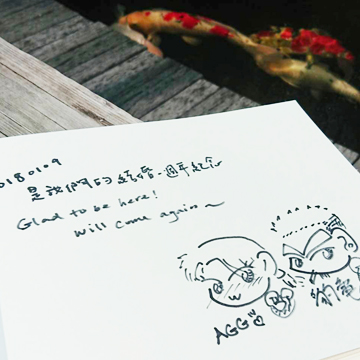 20180109
是我們的結婚一週年紀念
Glad to be here!
Will come again~
AGG